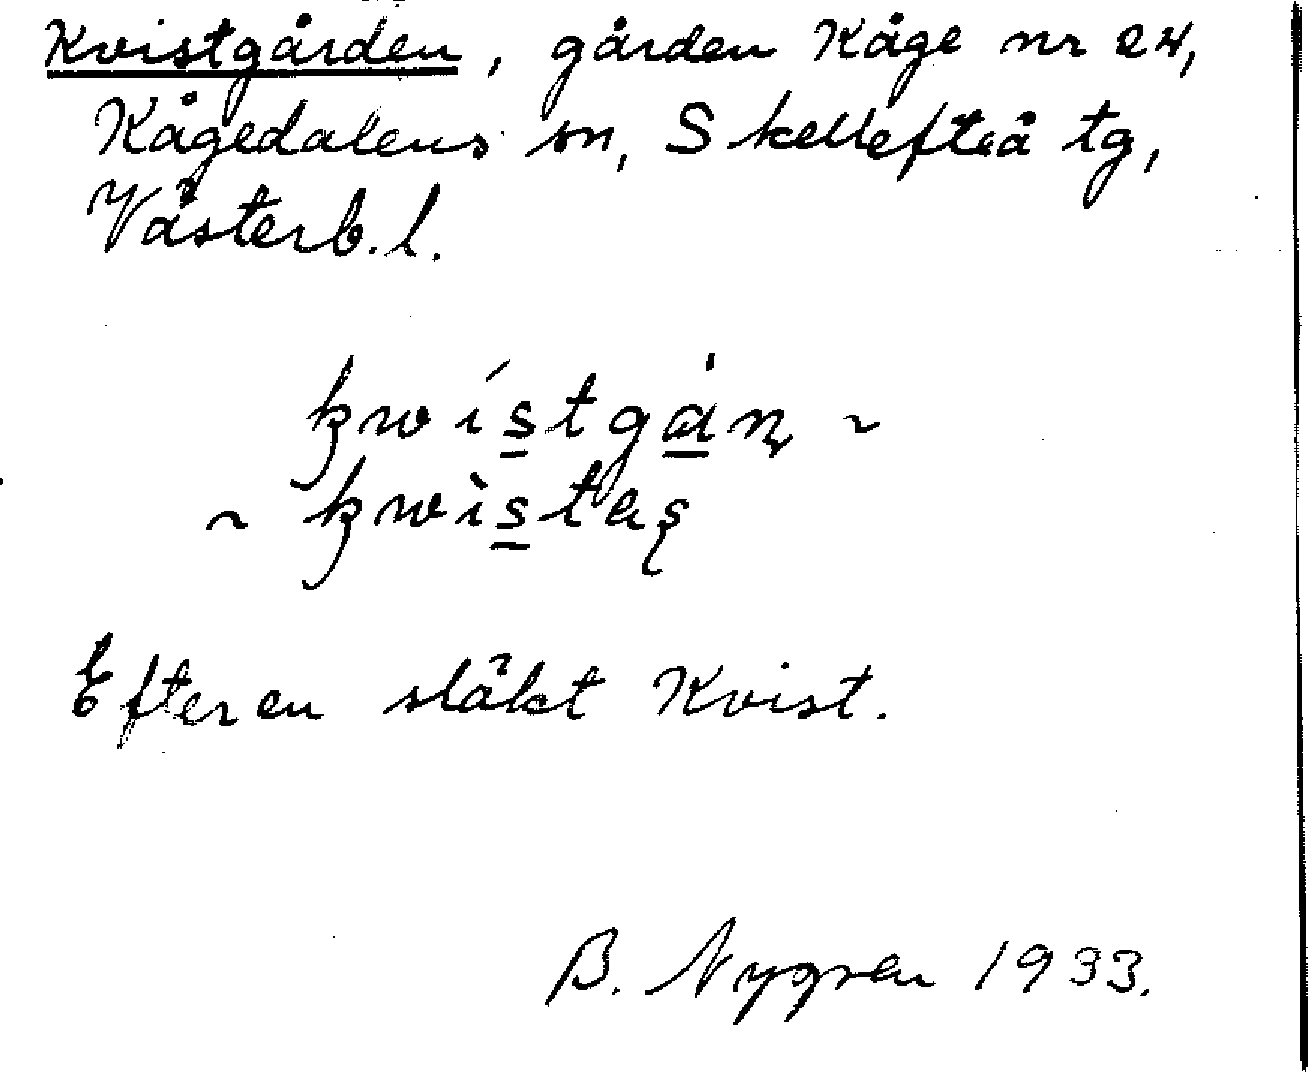 Kvistgården, gården Kåge nr 24,
Kågedalens sn, Skellefteå tg,
Västerb. l.
kwístgàṇ ~
~ kwìstaş
Efter en släkt Kvist.
B. Nygren 1933.